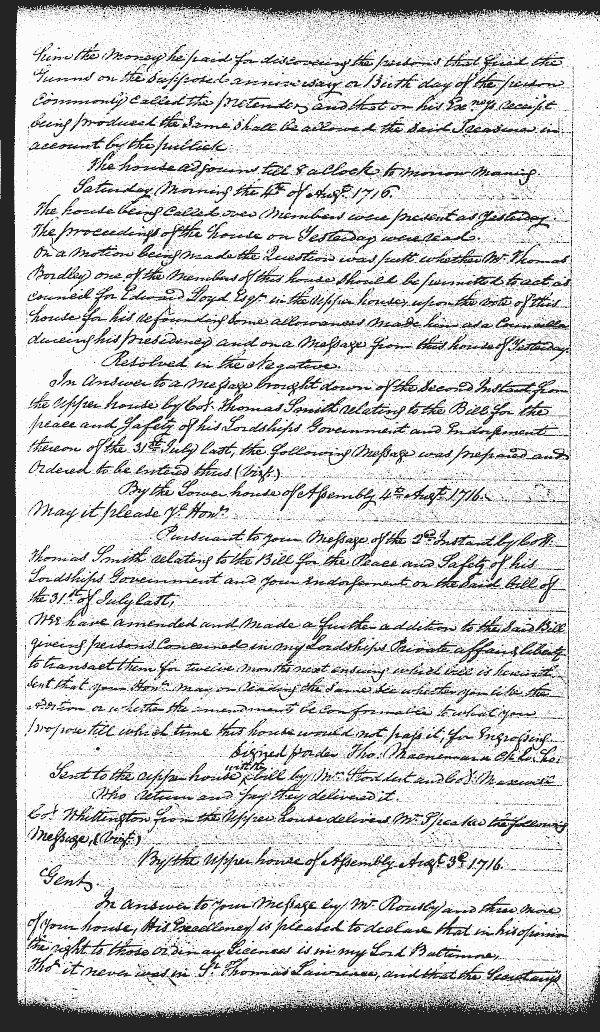 him the Money he paid for discovering the persons that fired the
Gunns on the supposed anniversary or Birth day of the person
Commonly called the pretender, and that on his Exncys receipt
being produced the same shall be allowed the said Treasurer in
account by the publick
The house adjourns till 8 aClock to morrow Morning
Saturday Morning the 4th of Augt. 1716.
The house being called over Members were present as Yesterday.
The proceedings of the house on Yesterday were read.
On a Motion being made the Question was putt whether Mr. Thomas
Bordley one of the Members of this house should be permitted to act as
council for Edward Loyd Esqr. in the upper house, upon the Vote of this
house for his refounding some allowances made him as a Councellor
dureing his presidency and on a Message from this house of Yesterday.
Resolved in the Negative
In Answer to a Message brought down of the second Instant from
the upper house by Col. Thomas Smith relating to the Bill for the
peace and Safety of his Lordships Government and Endorsement
thereon of the 31st July last, the following Message was prepared and
Ordered to be entered thus (Vizt.)
By the Lower house of Assembly 4th Augt. 1716.
May it please Yr. Honrs
Pursuant to your Message of the 2d Instant by Coll.
Thomas Smith relating to the Bill for the Peace and Safety of his
Lordships Government and your Endorsement on the said bill of
the 31st of July last,
Wee have amended and made a further addition to the said Bill
giveing persons Concerned in my Lordships Private affairs liberty
to transact them for twelve months next ensuing which bill is herewith
sent that your Honrs. may on reading the same see whether you like the
addition or whether the amendment be conformable to what you
propose till which time this house would not pass it for Engrossing.
Signed p order Tho. Macnemara Cl. Lo. Ho.
Sent to the upper house with the bill by Mr. Stoddert and Col. Maxwell
who return and say they delivered it.
Col. Whittington from the Upper house delivers Mr. Speaker the following
Message, (Vizt.)
By the Upper house of Assembly Augt. 3d 1716.
Gent
In answer to your Message by Mr. Rousby and three more
of your house, His Excellency is pleased to declare that in his opinion
the right to those ordinary Licences is in my Lord Baltimore,
Tho' it never was in Sr. Thomas Lawrence, and that the Secretarys